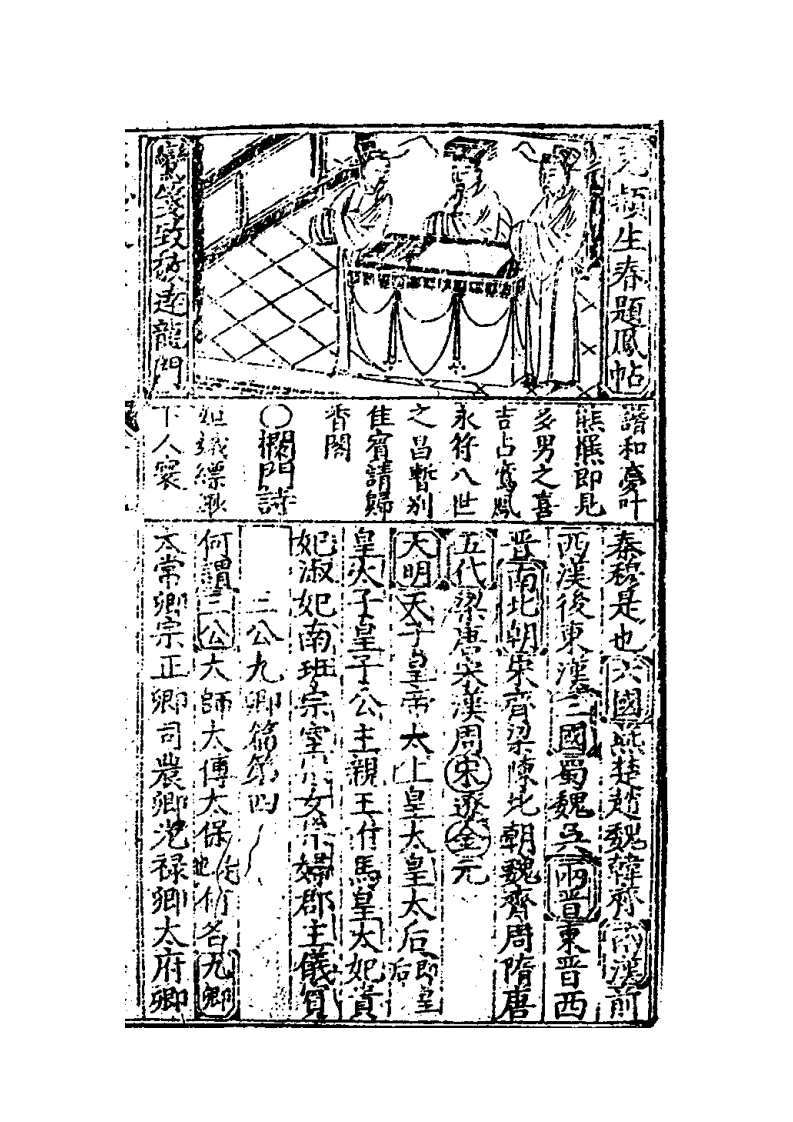 生春題鳳帖
龍門
諧和夢叶
熊羆即見
多男之喜
吉占鸞鳳
永符八世
之昌暫別
佳賓請歸
香閣
〇攔門詩
姮娥縹緲
下人寰
秦穆是也六國燕楚趙魏韓齊兩漢前
西漢後東漢三國蜀魏吳兩晋東晋西
晋南北朝宋齊梁陳北朝魏齊周隋唐
五代梁唐宋漢周宋遼金元
天明天子皇帝太上皇太皇太后即皇后
皇太子皇子公主親王附馬皇太妃貴
妃淑妃南班宗室女宗婦郡主儀賓
三公九卿篇第四
何謂三公太師太傅太保是也何名九卿
太常卿宗正卿司農卿光禄卿太府卿